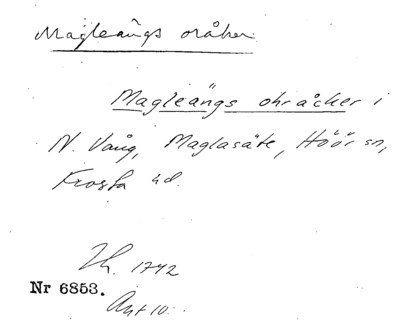 Magleängs oråker
Magleängs ohråcker i
N. Vång, Maglasäte, Höör sn,
Frosta hd.
Lh. 1742
Nr 6853.
Akt 10